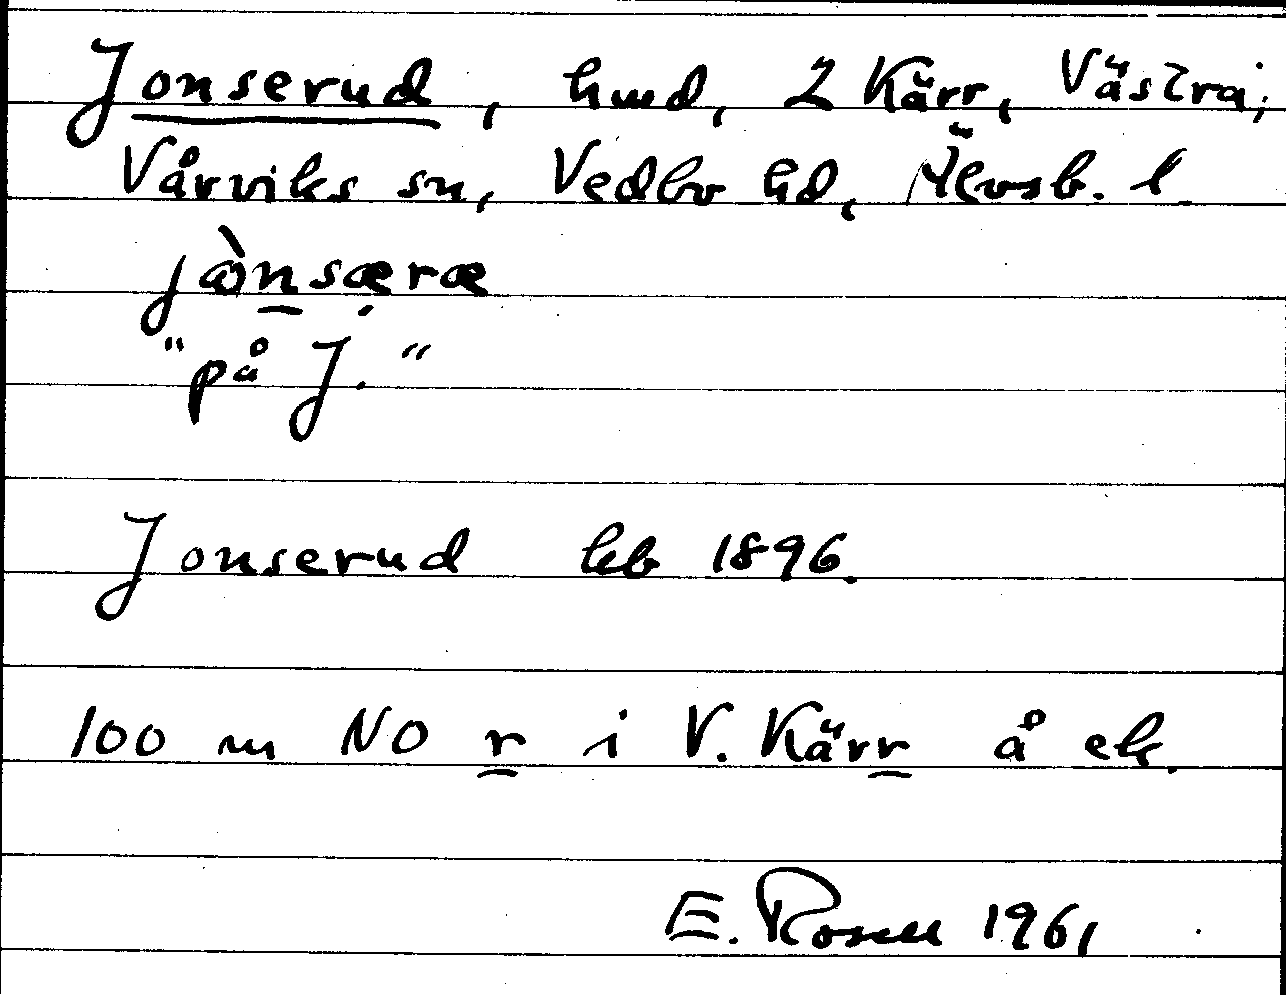 Jonserud, hmd, 2 Kärr, Västra,
Vårviks sn, Vedbo hd, Älvsb. l.
jònsæræ
"på J."
Jonserud hb 1896.
100 m NO r i V. Kärr å ek.
E. Rosell 1961